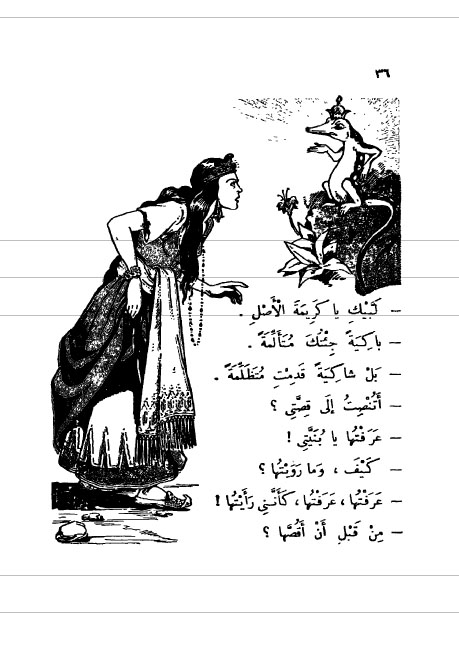 ٣٦
– لَبَّيْكِ يا كَرِيمَةَ الْأَصْلِ .
– باكِيَةً جِئْتُكَ مُتَأَلِّمَةً .
– بَلْ شاكِيَةً قَدِمْتِ مُتَظَلِّمَةً .
– أَتُنْصِتُ إلَى قِصَّتِي ؟
– عَرَفْتُها يا بُنَيَّتِي !
– كَيْفَ ، وَما رَوَيْتُها ؟
– عَرَفْتُها ، عَرَفْتُها ، كَأَنَّنِي رَأَيْتُها !
– مِنْ قَبْلِ أَنْ أَقُصَّها ؟